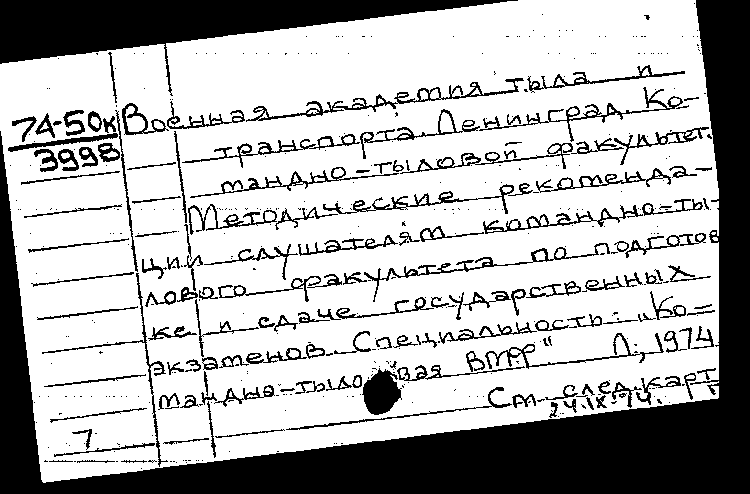 74-50к Военная академия тыла и
3998 транспорта. Ленинград. Ко-
мандно-тыловой факультет.
Методические рекоменда-
ции слушателям командно-ты-
лового факультета по подготов
ке и сдаче государственных
экзаменов. Специальность: „Ко=
мандно-тыловая ВМФ" Л., 1974
См. след. карт
24.IX.74.
7